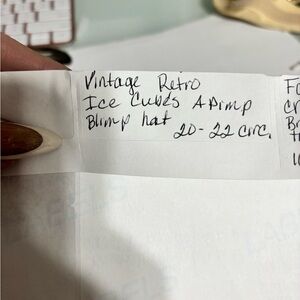 Vintage Retro
Ice Cubes A Pimp
Blimp hat
20-22 circ.